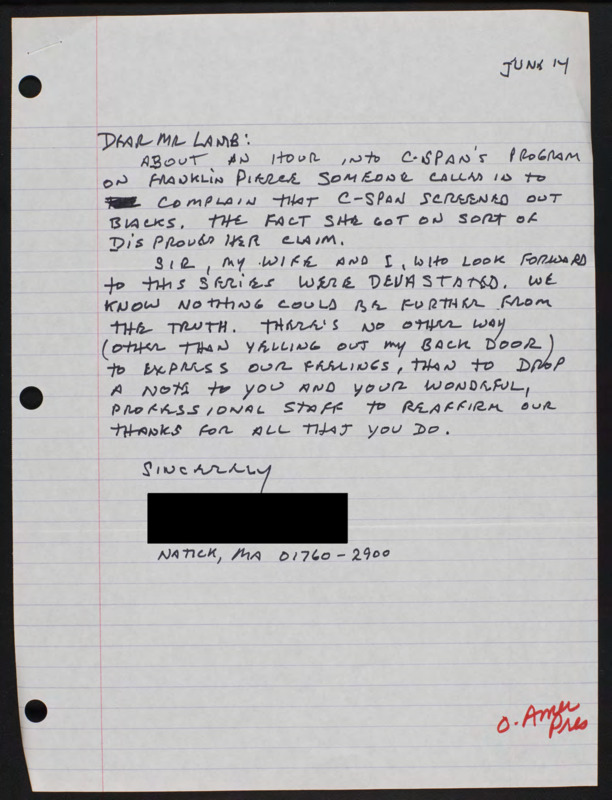 JUNE 14
DEAR MR LAMB:
ABOUT AN HOUR INTO C-SPAN'S PROGRAM
ON FRANKLIN PIERCE SOMEONE CALLED IN TO
COMPLAIN THAT C-SPAN SCREENED OUT
BLACKS. THE FACT SHE GOT ON SORT OF
DISPROVED HER CLAIM.
SIR, MY WIFE AND I, WHO LOOK FORWARD
TO THIS SERIES WERE DEVASTATED. WE
KNOW NOTHING COULD BE FURTHER FROM
THE TRUTH. THERE'S NO OTHER WAY
(OTHER THAN YELLING OUT MY BACK DOOR)
TO EXPRESS OUR FEELINGS, THAN TO DROP
A NOTE TO YOU AND YOUR WONDERFUL,
PROFESSIONAL STAFF TO REAFFIRM OUR
THANKS FOR ALL THAT YOU DO.
SINCERELY
NATICK, MA 01760-2900
O. Amer
Pres